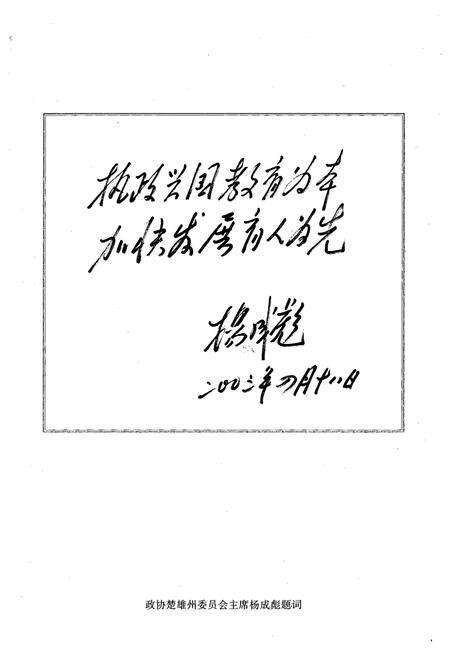 执政兴国教育为本
加快发展育人为先
杨成彪
二00三年四月十八日
政协楚雄州委员会主席杨成彪题词